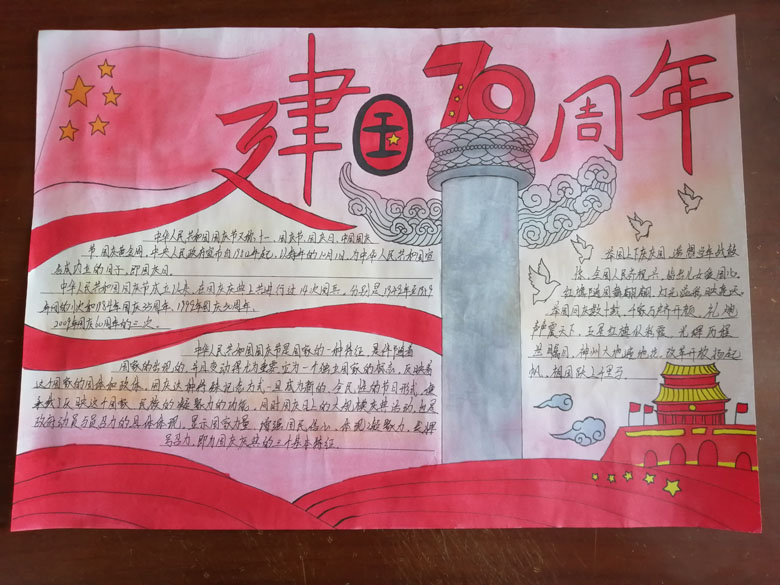 建国70周年
中华人民共和国国庆节又称十一、国庆节、国庆日、中国国庆
节、国庆黄金周。中央人民政府宣布自1949年起，以每年的10月1日，为中华人民共和国宣
告成内立的日子，即国庆日。
中华人民共和国国庆节成立以来，在国庆庆典上共进行过14次阅兵。分别是1949年至1959
年间的11次和1984年国庆35周年、1999年国庆50周年、
2009年国庆60周年的三次。
中华人民共和国国庆节是国家的一种特征，是伴随着
国家的出现的，并且变动得尤为重要成为一个独立国家的标志，反映着
这个国家的国体和政体。国庆这种特殊纪念方式一旦成为新的、全民性的节日形式，便
承载了反映这个国家、民族的凝聚力的功能，同时国庆日上的大规模庆祝活动，也是
政府动员与号召力的具体体现。显示国家力量、增强国民信心、体现凝聚力、发挥
号召力，即为国庆庆祝的三个基本特征
举国上下庆国庆，遥想当年战鼓
全国人民齐
红旗随国舞翩翩，灯光
举国同庆数十载，
声震天下，五星红旗
兰瞩目，神州大地遍地花，改革开放扬起
帆，祖国跃上千里马